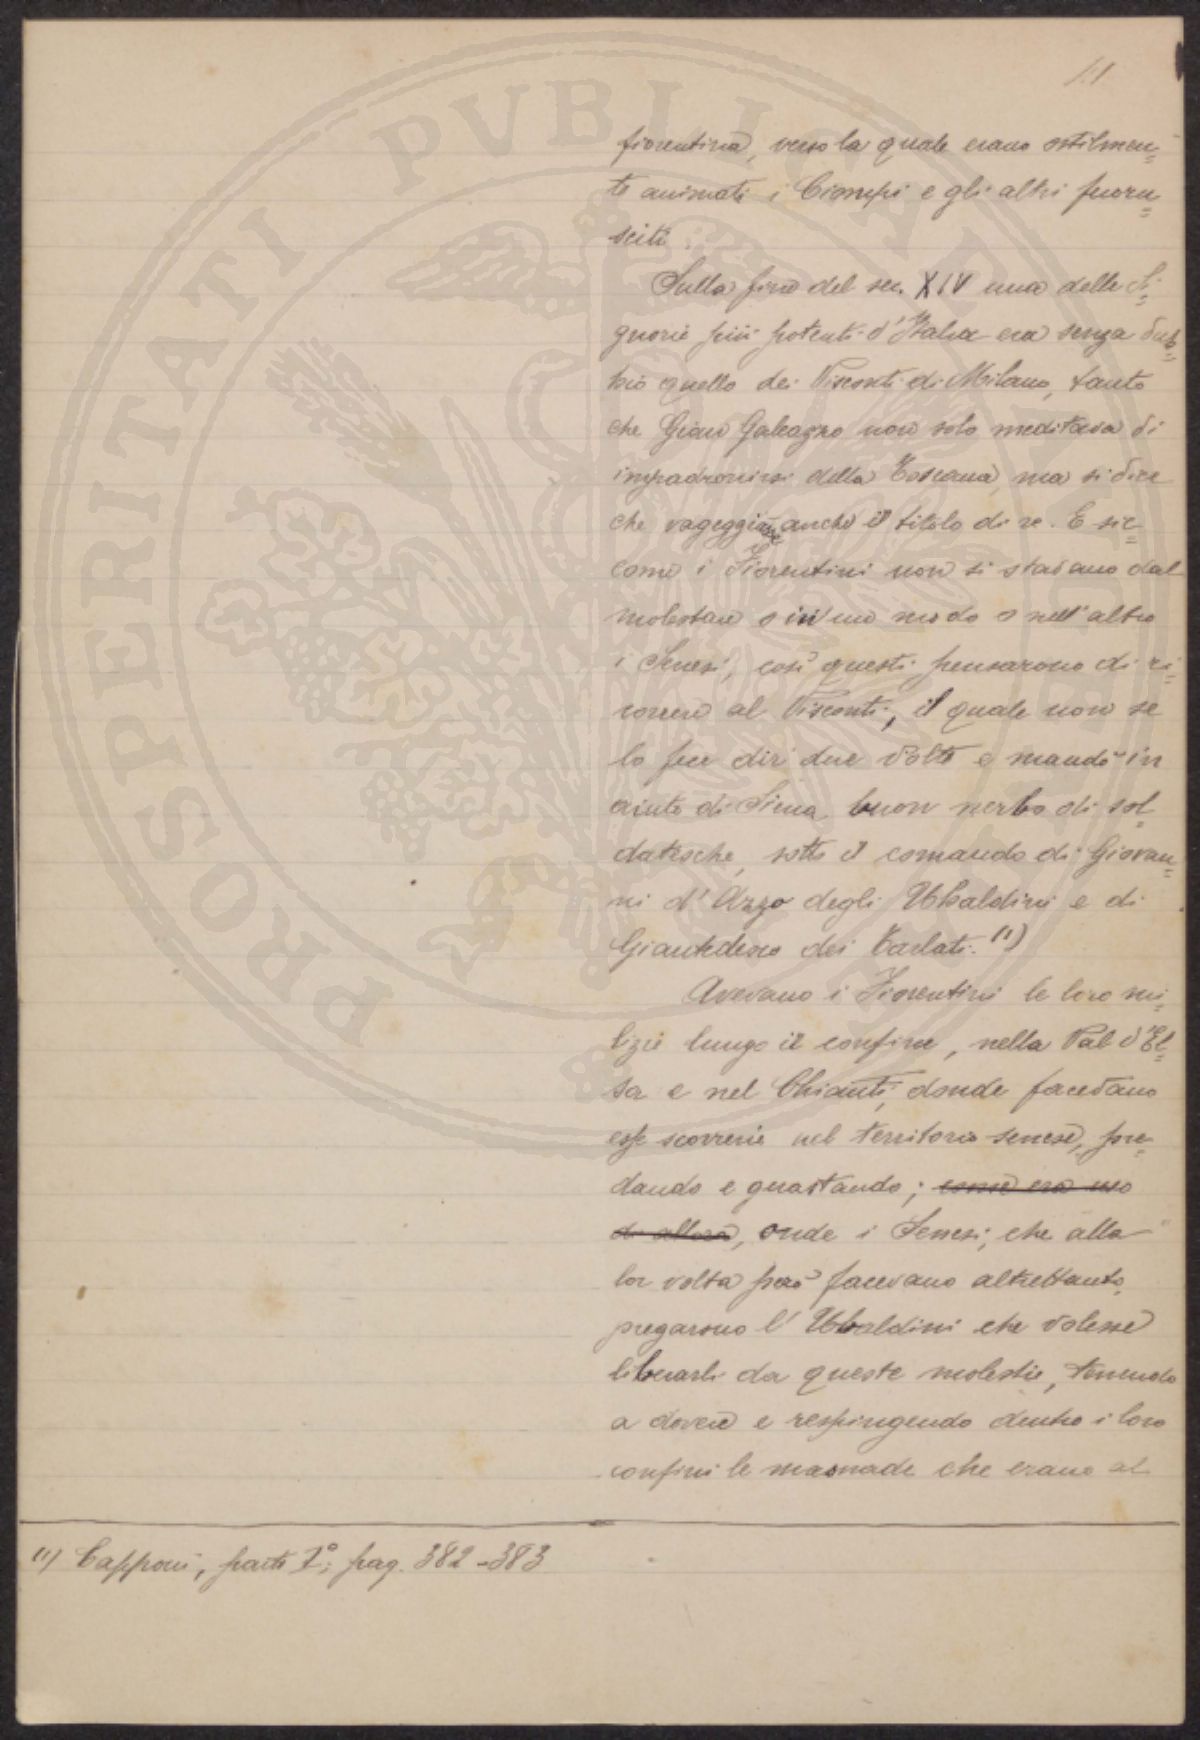 11
fiorentina, verso la quale erano ostilmen=
te animati i Ciompi e gli altri fuoru=
sciti.
Sulla fine del sec. XIV una delle Si=
gnorie più potenti d'Italia era senza dub=
bio quella dei Visconti di Milano, tanto
che Gian Galeazzo non solo meditava di
impadronirsi della Toscana, ma si dice
che vagheggiasse anche il titolo di re. E sic=
come i Fiorentini non si stavano dal
molestare o in un modo o nell'altro
i Senesi, così questi pensarono di ri=
correre al Visconti, il quale non se
lo fece dir due volte e mandò in
aiuto di Siena buon nerbo di sol=
datesche, sotto il comando di Giovan=
ni d'Azzo degli Ubaldini e di
Giantedesco dei Tarlati. (1)
Avevano i Fiorentini le loro mi=
lizie lungo il confine, nella Val d'El=
sa e nel Chianti, donde facevano
spesse scorrerie nel territorio senese, pre=
dando e guastando; come era uso
di allora, onde i Senesi, che alla
lor volta però facevano altrettanto,
pregarono l'Ubaldini che volesse
liberarli da queste molestie, tenendo
a dovere e respingendo dentro i loro
confini le masnade che erano al
(1) Capponi, parte I°, pag. 382-383
PROSPERITATI PVBLICAE